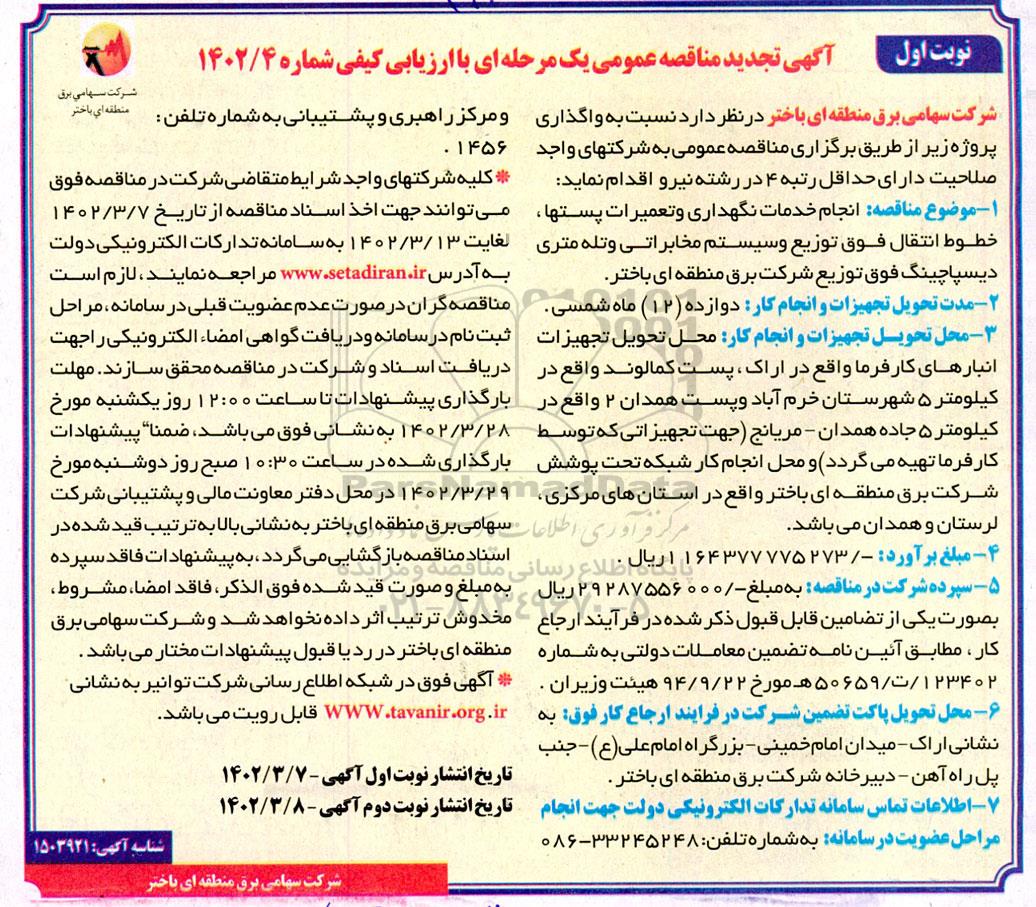 نوبت اول
آگهی تجدید مناقصه عمومی یک مرحله ای با ارزیابی کیفی شماره ۱۴۰۲/۴
شرکت سهامی برق
منطقه ای باختر
شرکت سهامی برق منطقه ای باختر در نظر دارد نسبت به واگذاری
پروژه زیر از طریق برگزاری مناقصه عمومی به شرکتهای واجد
صلاحیت دارای حداقل رتبه ۴ در رشته نیرو اقدام نماید:
۱-موضوع مناقصه: انجام خدمات نگهداری وتعمیرات پستها،
خطوط انتقال فوق توزیع وسیستم مخابراتی وتله متری
دیسپاچینگ فوق توزیع شرکت برق منطقه ای باختر.
۲-مدت تحویل تجهیزات و انجام کار: دوازده (۱۲) ماه شمسی.
۳-محل تحویل تجهیزات و انجام کار: محل تحویل تجهیزات
انبارهای کارفرما واقع در اراک، پست کمالوند واقع در
کیلومتر ۵ شهرستان خرم آباد وپست همدان ۲ واقع در
کیلومتر ۵ جاده همدان - مریانج (جهت تجهیزاتی که توسط
کارفرما تهیه می گردد)و محل انجام کار شبکه تحت پوشش
شرکت برق منطقه ای باختر واقع در استان های مرکزی،
لرستان و همدان می باشد.
۴- مبلغ برآورد: -/۱۱۶۴۳۷۷۷۷۵۲۷۳ ریال.
۵-سپرده شرکت در مناقصه: به مبلغ-/۲۹۲۸۷۵۵۶۰۰۰ ریال
بصورت یکی از تضامین قابل قبول ذکر شده در فرآیند ارجاع
کار، مطابق آئین نامه تضمین معاملات دولتی به شماره
۱۲۳۴۰۲/ت/۵۰۶۵۹ هـ مورخ ۹۴/۹/۲۲ هیئت وزیران .
۶- محل تحویل پاکت تضمین شرکت در فرایند ارجاع کار فوق: به
نشانی اراک-میدان امام خمینی-بزرگراه امام علی(ع)-جنب
پل راه آهن -دبیرخانه شرکت برق منطقه ای باختر.
۷-اطلاعات تماس سامانه تدارکات الکترونیکی دولت جهت انجام
مراحل عضویت در سامانه: به شماره تلفن: ۳۳۲۴۵۲۴۸-۰۸۶
و مرکز راهبری و پشتیبانی به شماره تلفن:
۱۴۵۶ .
* کلیه شرکتهای واجد شرایط متقاضی شرکت در مناقصه فوق
می توانند جهت اخذ اسناد مناقصه از تاریخ ۱۴۰۲/۳/۷
لغایت ۱۴۰۲/۳/۱۳ به سامانه تدارکات الکترونیکی دولت
به آدرس www.setadiran.ir مراجعه نمایند، لازم است
مناقصه گران در صورت عدم عضویت قبلی در سامانه، مراحل
ثبت نام در سامانه ودریافت گواهی امضاء الکترونیکی را جهت
دریافت اسناد و شرکت در مناقصه محقق سازند. مهلت
بارگذاری پیشنهادات تا ساعت ۱۲:۰۰ روز یکشنبه مورخ
۱۴۰۲/۳/۲۸ به نشانی فوق می باشد، ضمنا" پیشنهادات
بارگذاری شده در ساعت ۱۰:۳۰ صبح روز دوشنبه مورخ
۱۴۰۲/۳/۲۹ در محل دفتر معاونت مالی و پشتیبانی شرکت
سهامی برق منطقه ای باختر به نشانی بالا به ترتیب قید شده در
اسناد مناقصه بازگشایی می گردد، به پیشنهادات فاقد سپرده
به مبلغ و صورت قید شده فوق الذکر، فاقد امضا، مشروط،
مخدوش ترتیب اثر داده نخواهد شد و شرکت سهامی برق
منطقه ای باختر در رد یا قبول پیشنهادات مختار می باشد.
* آگهی فوق در شبکه اطلاع رسانی شرکت توانیر به نشانی
WWW.tavanir.org.ir قابل رویت می باشد.
تاریخ انتشار نوبت اول آگهی -۱۴۰۲/۳/۷
تاریخ انتشار نوبت دوم آگهی -۱۴۰۲/۳/۸
شناسه آگهی: ۱۵۰۳۹۲۱
شرکت سهامی برق منطقه ای باختر
ParsNamadData
پایگاه اطلاع رسانی مناقصه و مزایده
۰۲۱-۸۸۳۴۹۶۷۰-۵